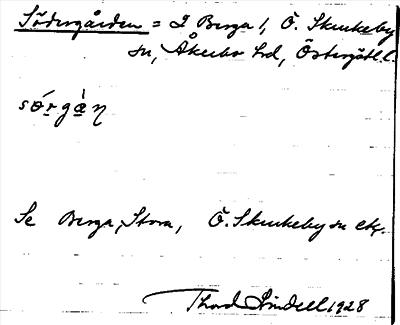 Södergården = I Berga 1, Ö. Skrukeby
sn, Åkerbo hd, Östergötl. l.
sǿrgàη
Se Berga, Stora, Ö. Skrukeby sn etc.
Thord Lindell 1928